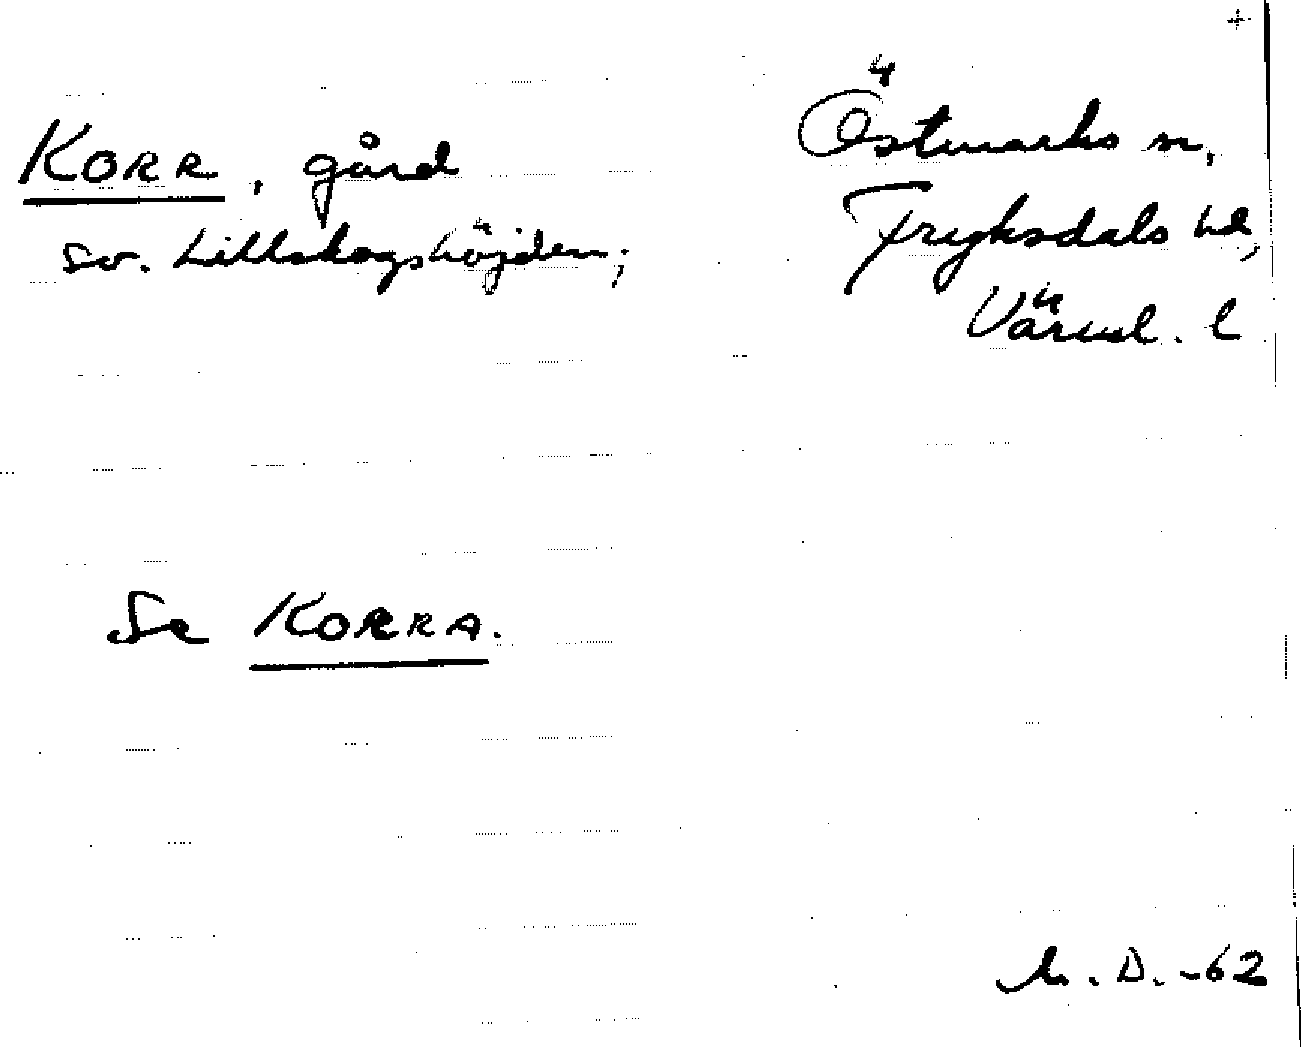 KORR, gård
sv. Lillskogshöjden;
Östmarks sn,
Fryksdals hd,
Värml. l
Se KORRA.
D. -62